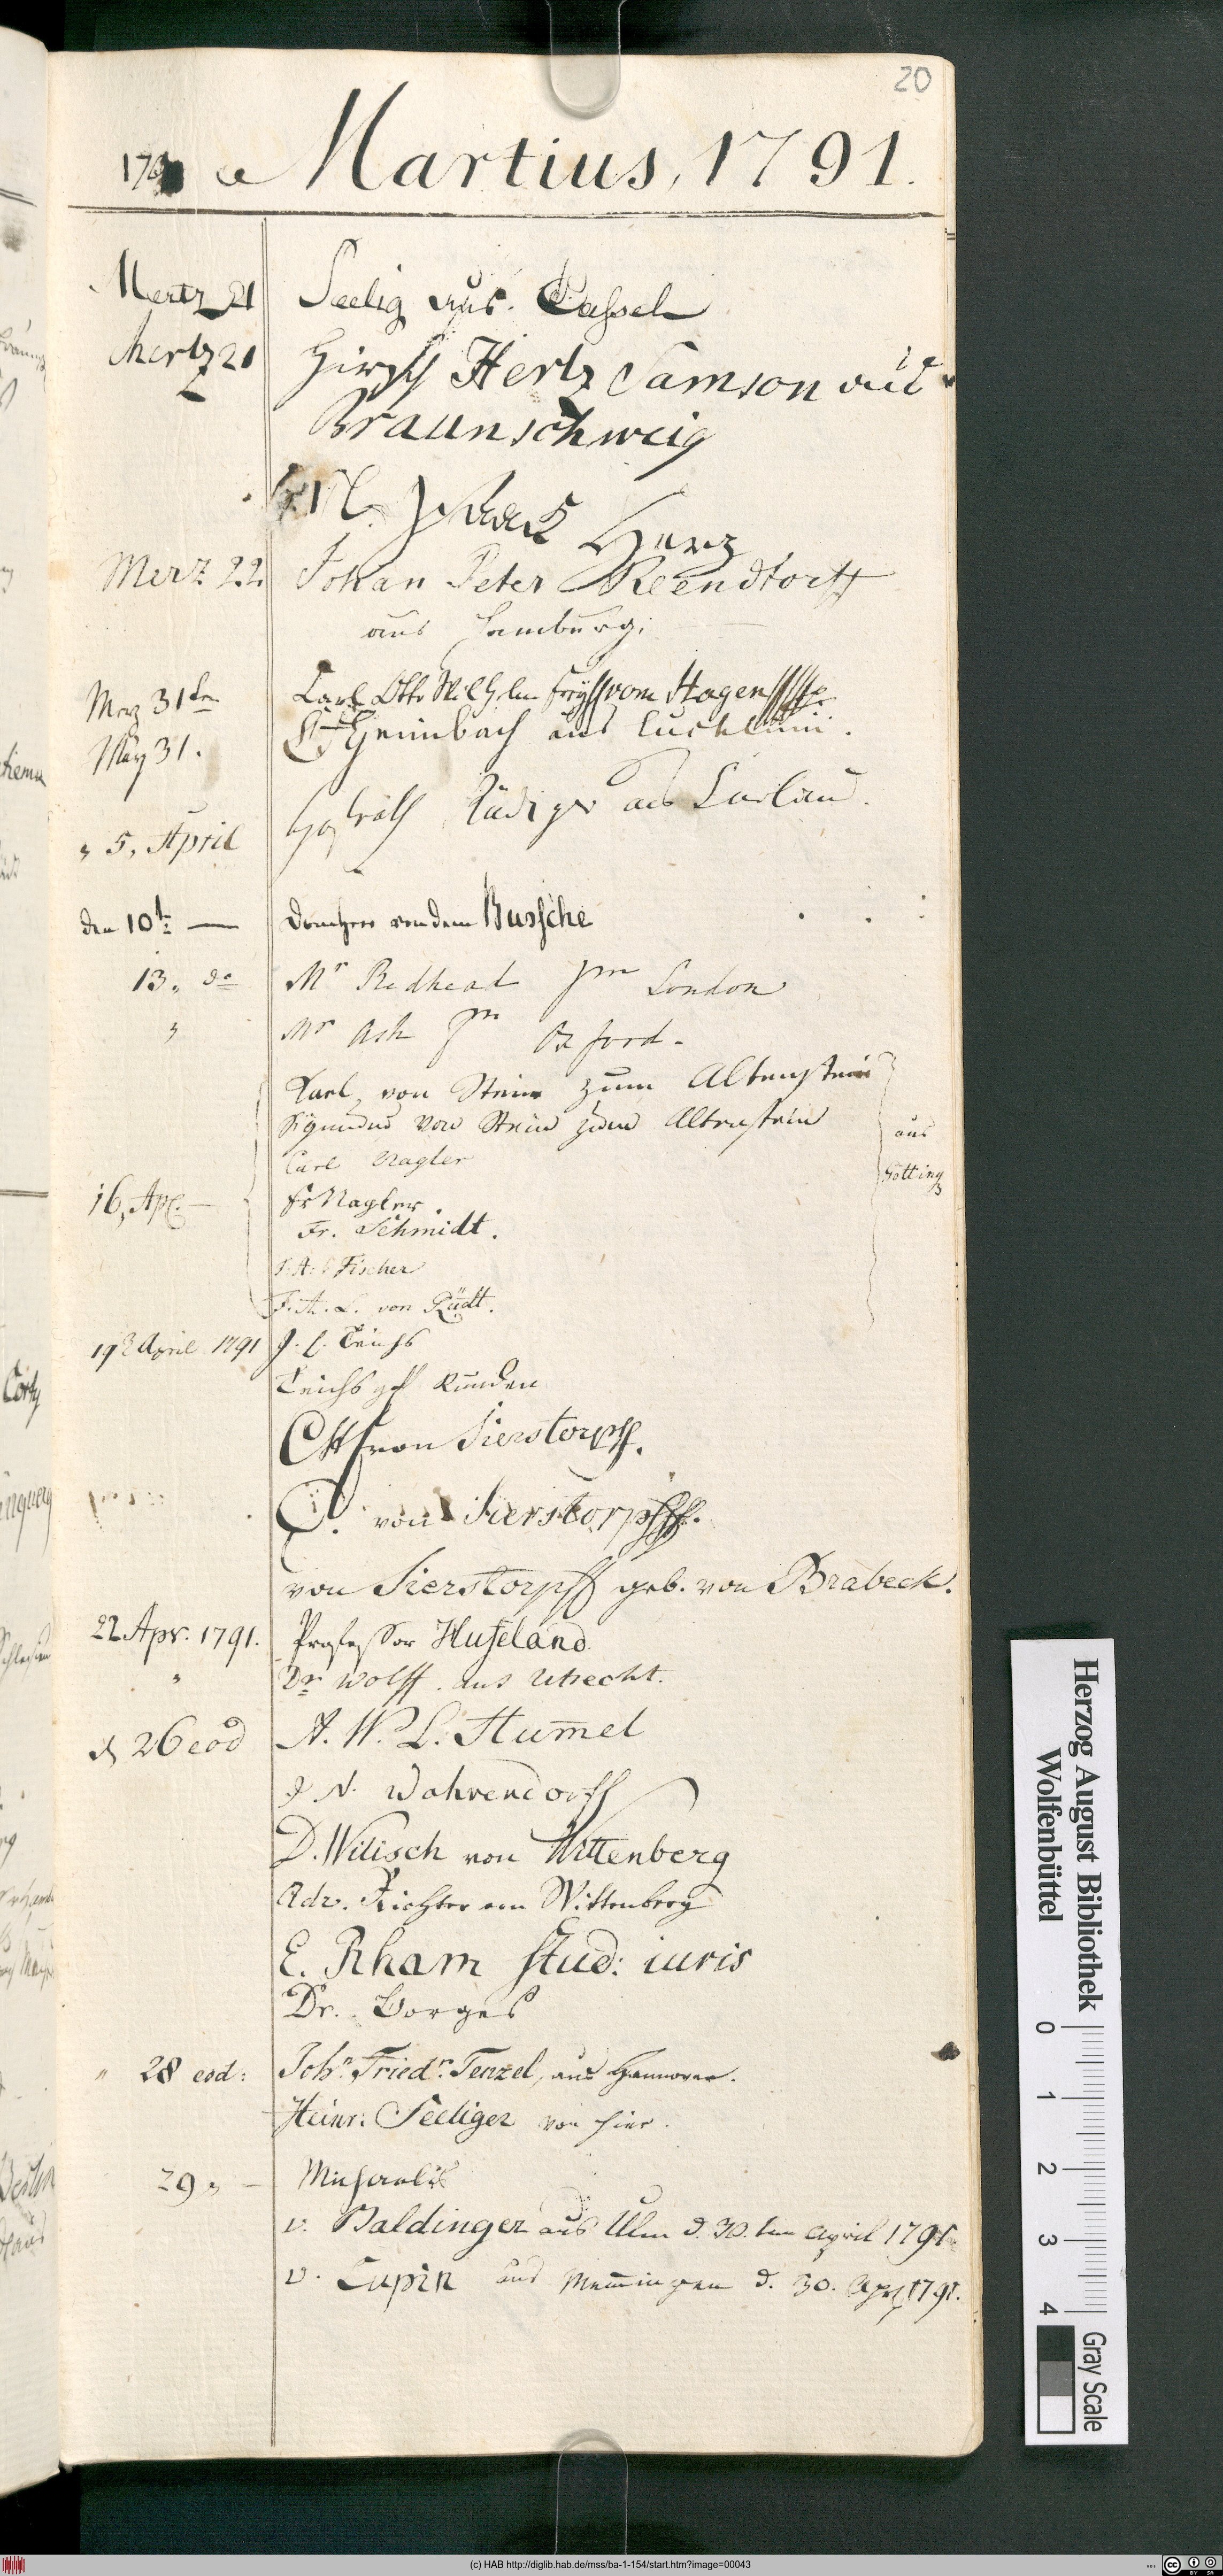 20
Martius, 1791.
Mertz 21 Seelig aus Cassel
Mertz 21 Hirsch Hertz Samson aus
Braunschweig
Herz
Merz 22. Johan Peter Reendtorff
aus Hamburg.
Merz 31ten Carl Otto Wilhelm vom Hagen
May 31. Heimbach aus Lucklum.
" 5, April Hofrath Rüdiger aus Curland.
den 10t: — Domherr von dem Bussche
13. do Mr Redhead from London
" Mr Ash fm Oxford.
Karl von Stein zum Altenstein
Sigmund von Stein zum Altenstein
aus
Götting
Carl Nagler
16, Apr. — Fr Nagler.
Fr. Schmidt.
Fischer
F. A. L. von Rüdt.
19 April 1791
C von Sierstorpff.
C. von Sierstorpff.
von Sierstorpff geb. von Brabeck.
22 Apr. 1791. Professor Hufeland
" Dr Wolff aus Utrecht.
d 26 eod A. W. L. Hum̅el
J N. Wahrendorff
D. Wilisch von Wittenberg
Adv. Richter von Wittenberg
E. Rham stud: iuris
Dr. Borges
" 28 eod: John Friedr. Tenzel, aus Hannover.
Heinr: Seeliger von hier.
29 " — Michaelis
v. Baldinger aus Ulm d. 30. ten April 1791
v. Lupin aus Mem̅ingen d. 30. Apr 1791.
Herzog August Bibliothek
Wolfenbüttel
0 1 2 3 4
Gray Scale
(c) HAB http://diglib.hab.de/mss/ba-1-154/start.htm?image=00043